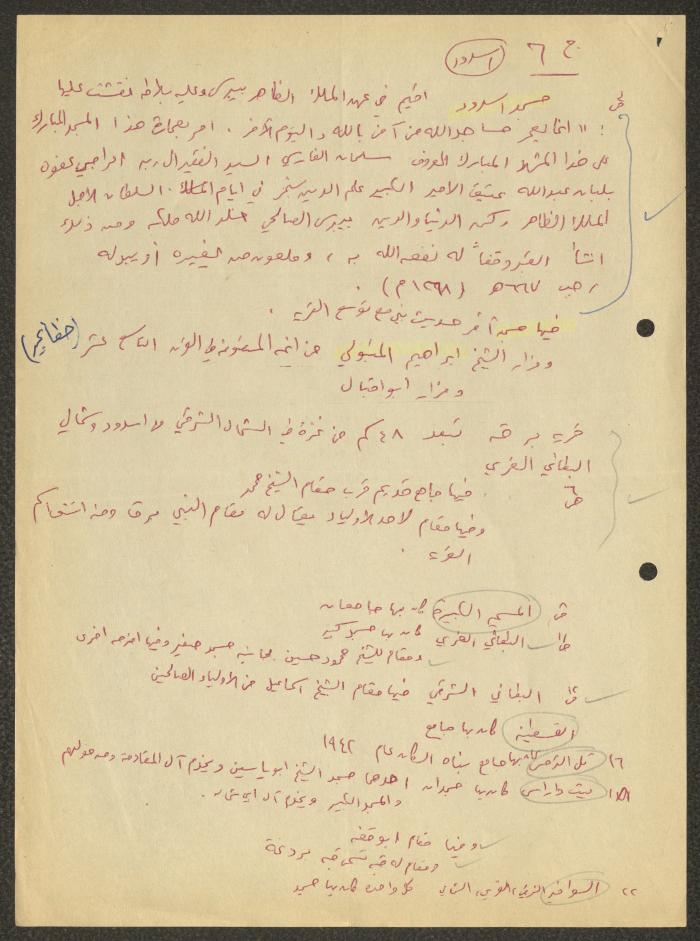 ج ٦ اسدود
ص مسجد اسدود اقيم في عهد الملك الظاهر بيبرس وعليه بلاطة نقشت عليها
: " انما يعمر مساجد الله من آمن بالله واليوم الآخر . امر بعمارة هذا المسجد المبارك
على هذا المشهد المبارك المعروف سلمان الفارسي السيد الفقير الى ربه الراجي عفوه
بلبان عبدالله عتيق الامير الكبير علم الدين سنجر في ايام الملك السلطان الاجل
الملك الظاهر ركن الدنيا والدين بيبرس الصالحي خلد الله ملكه ومن ذلك
انشأ القبر وقفاً له نفعه الله به ، وملعون من يغيره أو يبدله
رجب ٦٦٧ هـ (١٢٦٨ م)
فيها مسجد آخر حديث بني مع توسع القرية .
ومزار الشيخ ابراهيم المتبولي من ائمة المتصوفة في القرن التاسع عشر
ومزار ابو اقبال
قرية برقة تبعد ٤٨ كم من غزة في الشمال الشرقي من اسدود وشمالي
البطاني الغربي
فيها جامع قديم قرب مقام الشيخ محمد
وفيها مقام لاحد الاولياء يقال له مقام النبي برق ومنه اشتق اسم
القرية .
المسمية الكبيرة كان بها جامعان
البطاني الغربي كان بها مسجد كبير
ومقام للشيخ محمود حسين بجانبه مسجد صغير وفيها اضرحة اخرى
البطاني الشرقي فيها مقام الشيخ اسماعيل من الاولياء الصالحين
القسطينة كان بها جامع
١٦ تل الترمس كان بها جامع بناه السكان عام ١٩٤٢
١٨ بيت داراس كان بها مسجدان احدهما مسجد الشيخ ابو ياسين ويخدم آل المقادمة ومن حولهم
والمسجد الكبير ويخدم آل
وفيها مقام ابو قفة
ومقام له قبة تسمى قبة بردغة
٢٢ السوافير الشرقي، الغربي، الشمالي كل واحدة كان بها مسجد